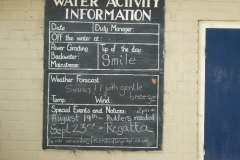 WATER ACTIVITY
INFORMATION
Date Duty Manager:
Off the water at:
River Grading Tip of the day:
Backwater: Smile
Mainstream:
Weather Forecast:
Sunny gentle
Temp: Wind: breeze
Special Events and Notices: 2pm
August 19th - Helpers needed
Sept 23rd - Regatta